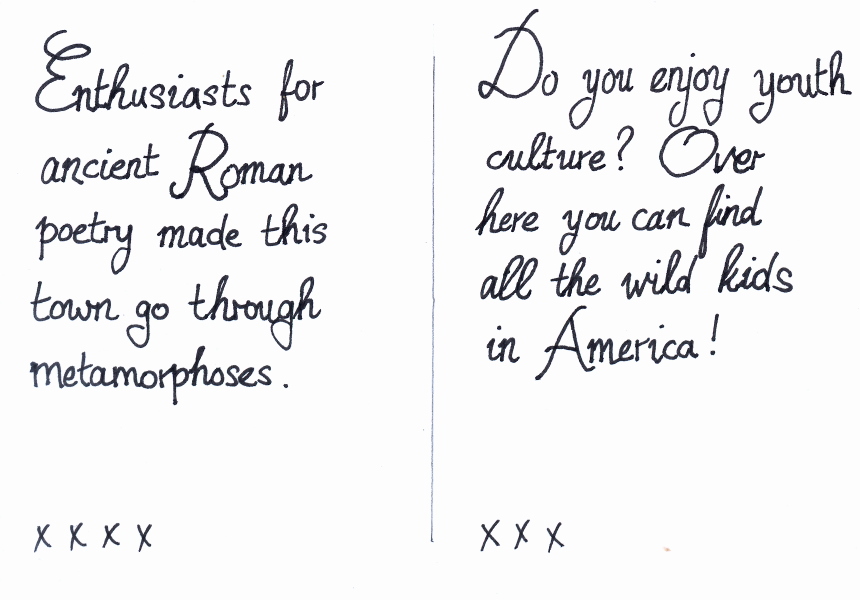 Enthusiasts for
ancient Roman
poetry made this
town go through
metamorphoses.
x x x x
Do you enjoy youth
culture? Over
here you can find
all the wild kids
in America!
x x x